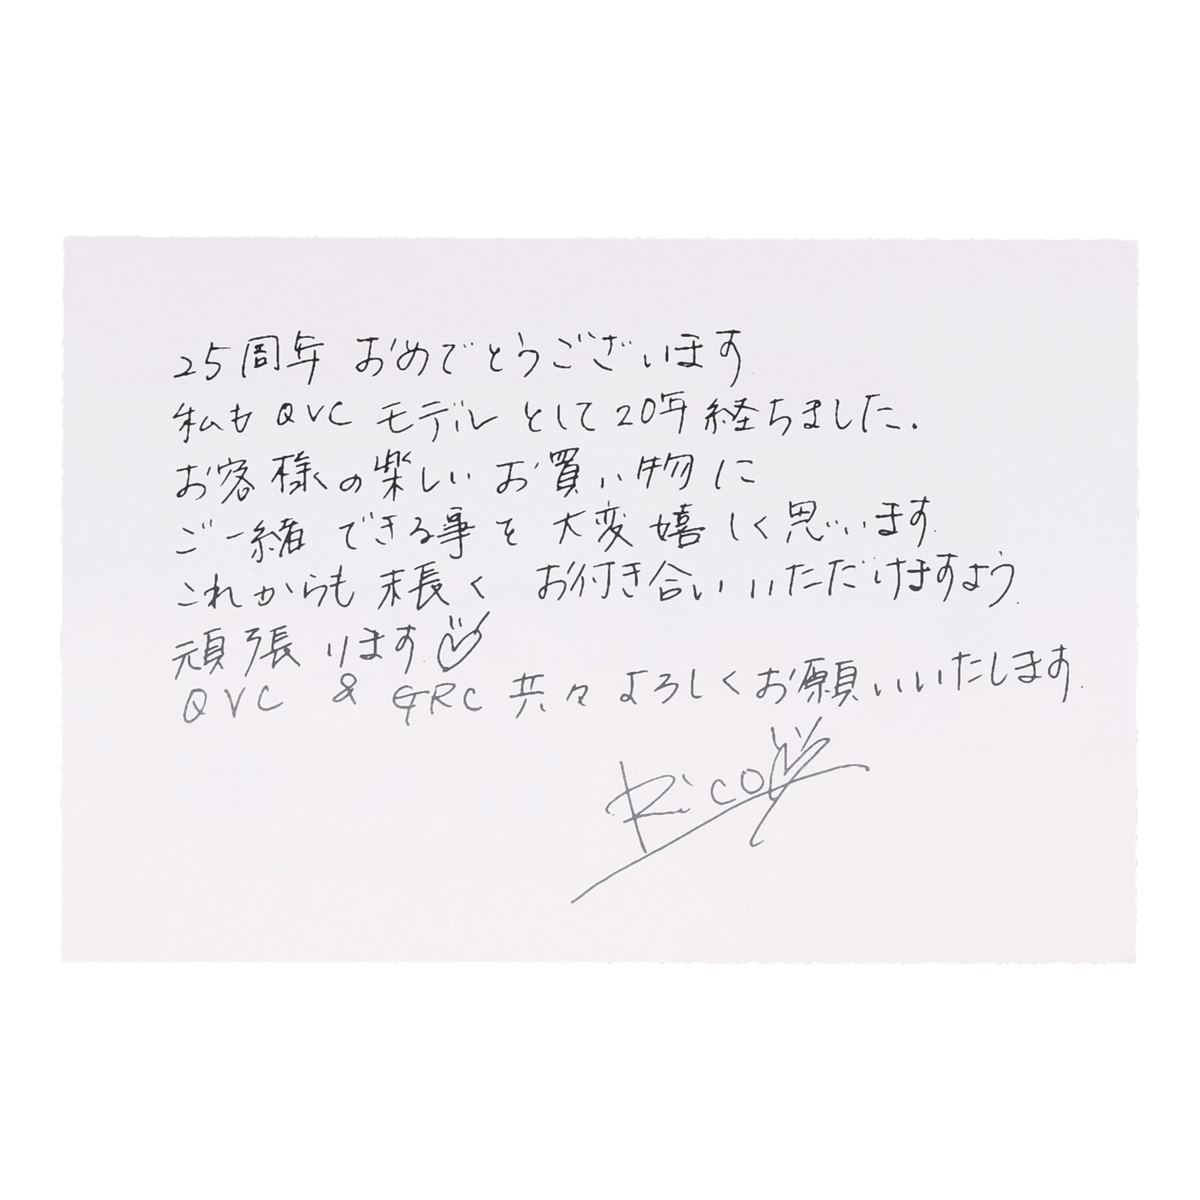 25周年 おめでとうございます
私も QVC モデルとして20年経ちました.
お客様の楽しいお買い物に
ご一緒できる事を大変嬉しく思います.
これからも末長く お付き合いいただけますよう.
頑張ります.♡
QVC & GRC 共々よろしくお願いいたします.
Rico♡